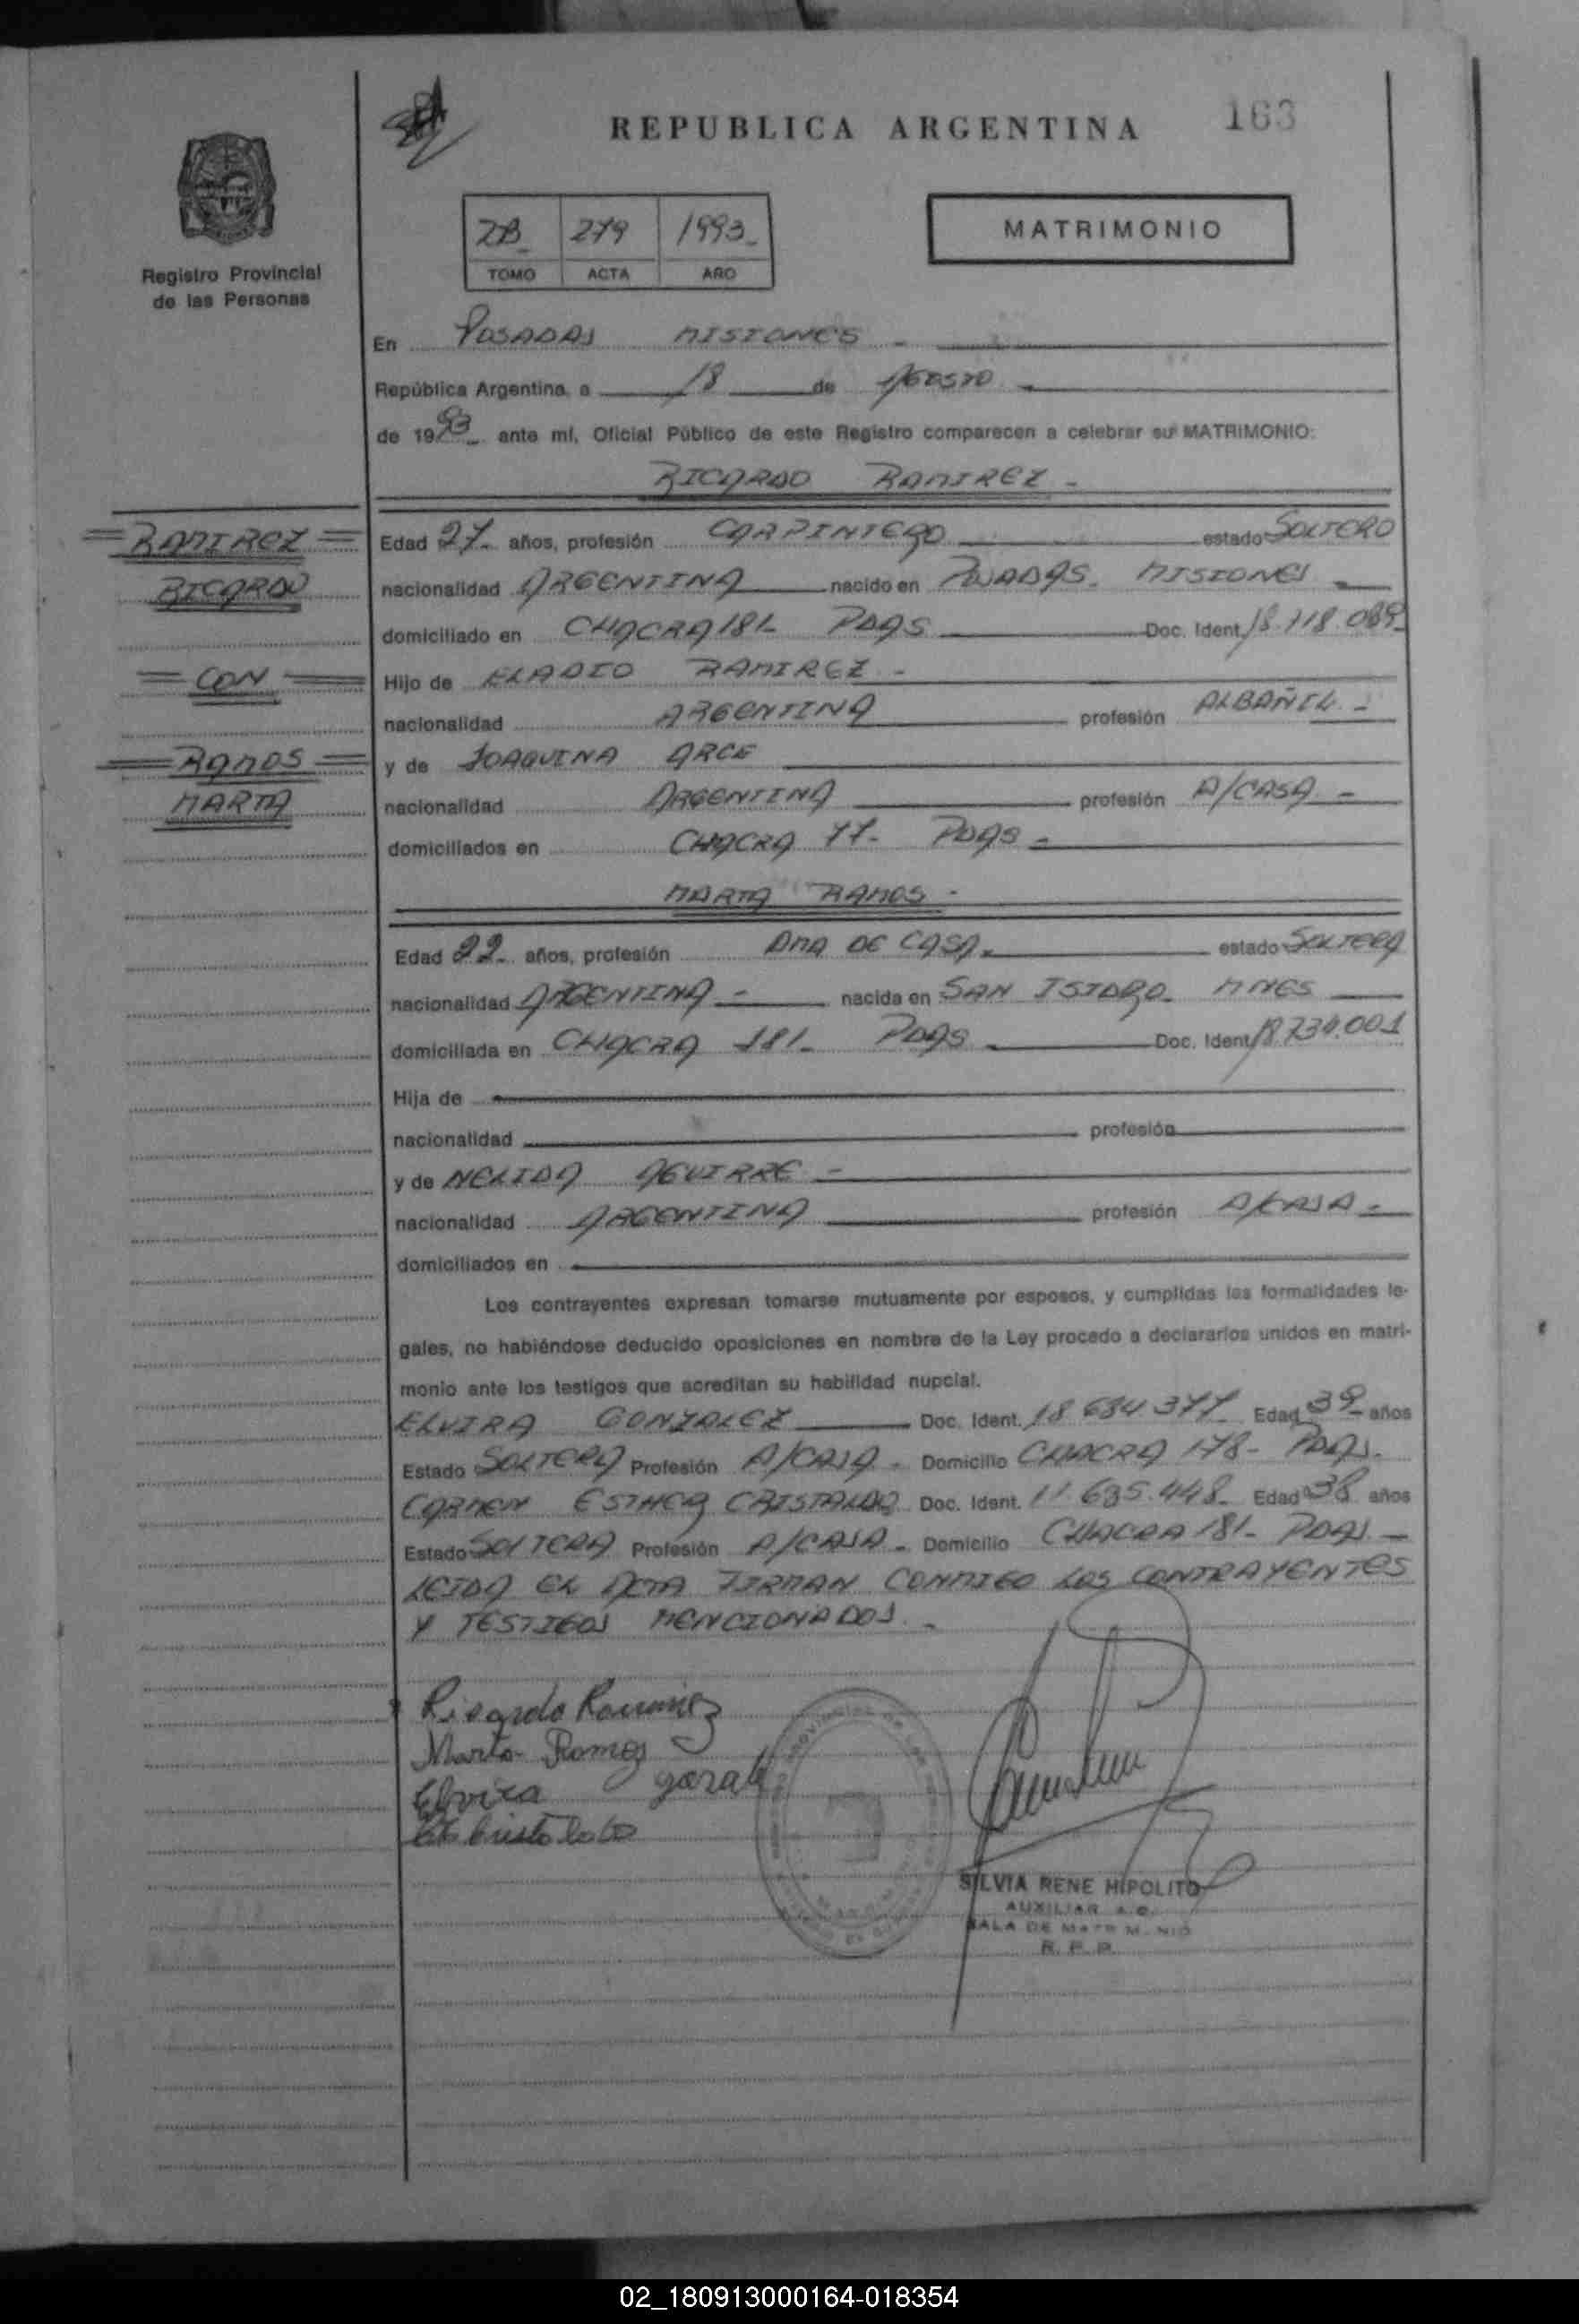 REPUBLICA ARGENTINA
163
Registro Provincial
de las Personas
2B 279 1993
TOMO ACTA AÑO
MATRIMONIO
En POSADAS MISIONES
República Argentina, a 18 de AGOSTO
de 1993 ante mí, Oficial Público de este Registro comparecen a celebrar su MATRIMONIO:
RICARDO RAMIREZ
RAMIREZ
RICARDO
CON
RAMOS
MARTA
Edad 27 años, profesión CARPINTERO estado SOLTERO
nacionalidad ARGENTINA nacido en POSADAS. MISIONES
domiciliado en CHACRA 181 PDAS Doc. Ident. 18.118.089
Hijo de ELADIO RAMIREZ
nacionalidad ARGENTINA profesión ALBAÑIL
y de JOAQUINA ARCE
nacionalidad ARGENTINA profesión A/CASA
domiciliados en CHACRA 77 PDAS
MARTA RAMOS
Edad 22 años, profesión AMA DE CASA estado SOLTERA
nacionalidad ARGENTINA nacida en SAN ISIDRO MNES
domiciliada en CHACRA 181 PDAS Doc. Ident. 18.734.001
Hija de
nacionalidad profesión
y de NELIDA AGUIRRE
nacionalidad ARGENTINA profesión A/CASA
domiciliados en
Los contrayentes expresan tomarse mutuamente por esposos, y cumplidas las formalidades le-
gales, no habiéndose deducido oposiciones en nombre de la Ley procedo a declararlos unidos en matri-
monio ante los testigos que acreditan su habilidad nupcial.
ELVIRA GONZALEZ Doc. Ident. 18 684 377 Edad 39 años
Estado SOLTERA Profesión A/CASA Domicilio CHACRA 178 - PDAS.
CARMEN ESTHER CRISTALDO Doc. Ident. 11.635.448 Edad 38 años
Estado SOLTERA Profesión A/CASA Domicilio CHACRA 181 - PDAS.
LEIDA EL ACTA FIRMAN CONMIGO LOS CONTRAYENTES
Y TESTIGOS MENCIONADOS.
Ricardo Ramirez
Marta Ramos
Elvira
SILVIA RENE HIPOLITO
AUXILIAR
SALA DE MATRIMONIO
R. P. P.
02_180913000164-018354